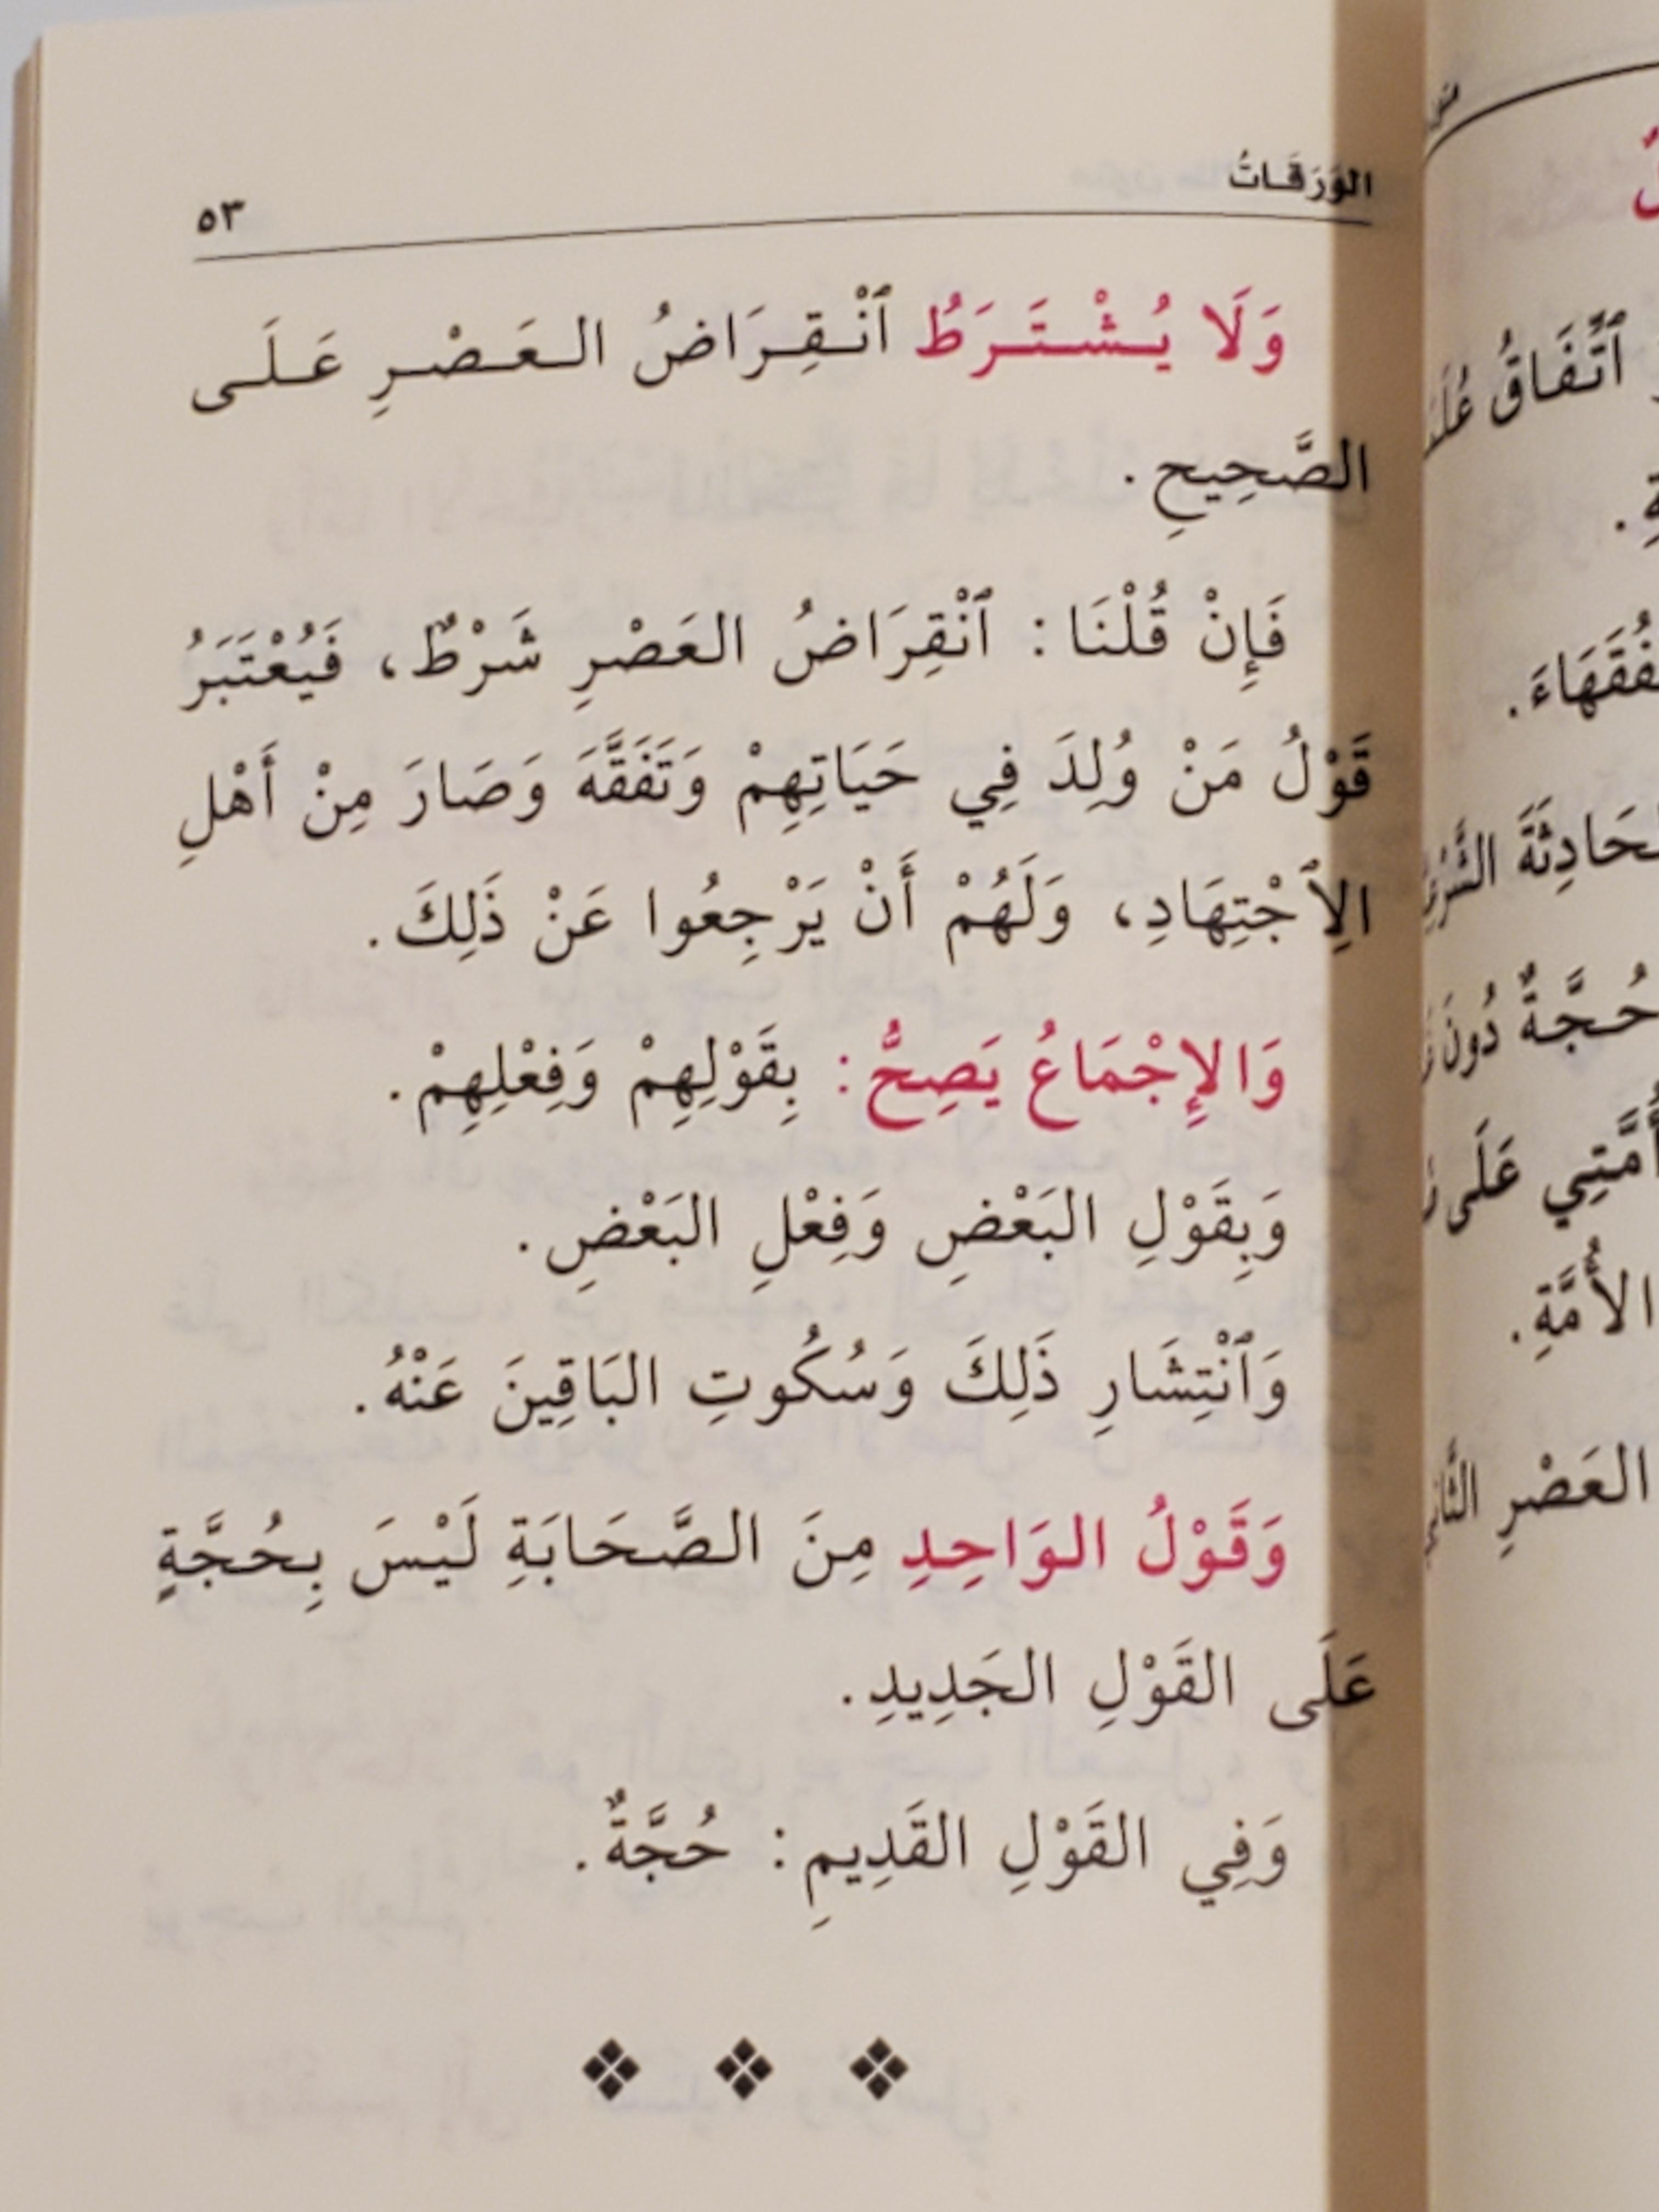 الوَرَقَاتُ
٥٣
وَلَا يُشْتَرَطُ ٱنْقِرَاضُ العَصْرِ عَلَى
الصَّحِيحِ.
فَإِنْ قُلْنَا: ٱنْقِرَاضُ العَصْرِ شَرْطٌ، فَيُعْتَبَرُ
قَوْلُ مَنْ وُلِدَ فِي حَيَاتِهِمْ وَتَفَقَّهَ وَصَارَ مِنْ أَهْلِ
الِٱجْتِهَادِ، وَلَهُمْ أَنْ يَرْجِعُوا عَنْ ذَلِكَ.
وَالإِجْمَاعُ يَصِحُّ: بِقَوْلِهِمْ وَفِعْلِهِمْ.
وَبِقَوْلِ البَعْضِ وَفِعْلِ البَعْضِ.
وَٱنْتِشَارِ ذَلِكَ وَسُكُوتِ البَاقِينَ عَنْهُ.
وَقَوْلُ الوَاحِدِ مِنَ الصَّحَابَةِ لَيْسَ بِحُجَّةٍ
عَلَى القَوْلِ الجَدِيدِ.
وَفِي القَوْلِ القَدِيمِ: حُجَّةٌ.
ٱتِّفَاقُ
حُجَّةٌ دُونَ
عَلَى
الأُمَّةِ.
العَصْرِ